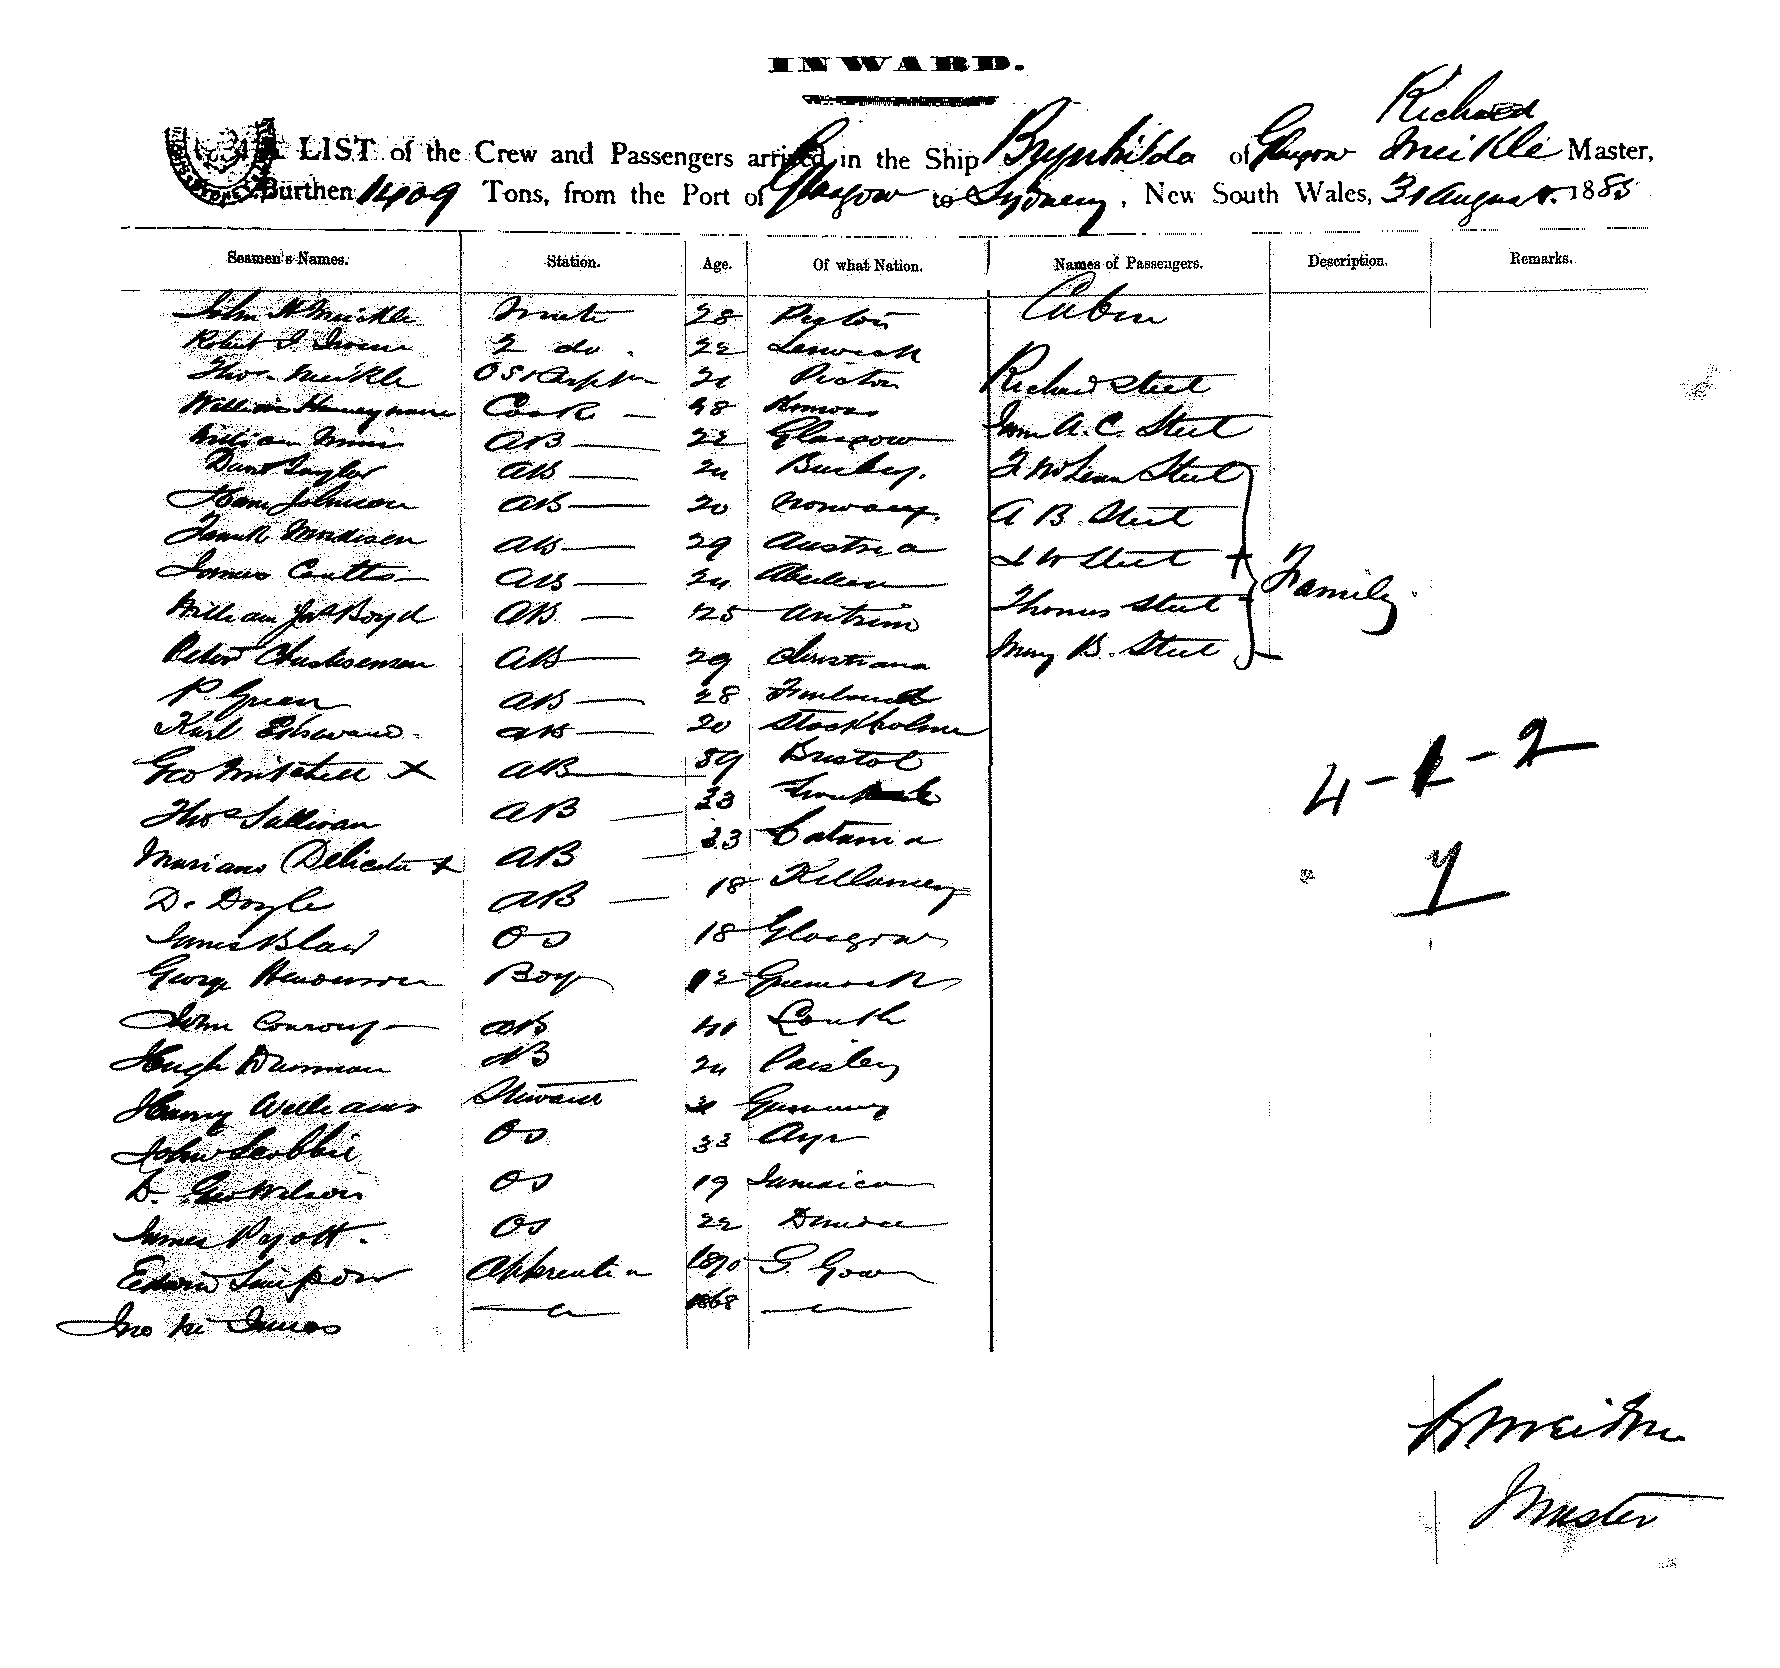 INWARD.
A LIST of the Crew and Passengers arrived in the Ship Brynhilda of Glasgow Richard Meikle Master,
Burthen 1409 Tons, from the Port of Glasgow to Sydney, New South Wales, 31 August 1885
Seamen's Names. Station. Age. Of what Nation. Names of Passengers. Description. Remarks.
John H Meikle Mate 28 Cabin
Robert 2 do. 22 Lerwick
Thos Meikle OS 21 Richard Steel
William Honeyman Cook 48 A. C. Steel
William AB 22 Glasgow
Taylor AB 24 Busby. McLean Steel
Hans Johnson AB 20 Norway. A B. Steel
AB 29 Austria W Steel
James Coutts AB 24 Aberdeen Family.
William Jas Boyd AB 25 Antrim Thomas Steel
Peter Christensen AB 29 Christiana Mary B. Steel
P. Green AB 28
Karl AB 20 Stockholm
Geo Mitchell x AB 39 Bristol
4 - 1 - 2
Thos Sullivan AB 23
Mariano Delicata x AB 33 Catania
7
D. Doyle AB 18 Killarney
James Blair OS 18 Glasgow
George Henderson Boy Greenock
John Conroy AB 40 Louth
Hugh AB 24 Paisley
Henry Williams Steward Germany
John Scobbie OS 33 Ayr
D. Geo Wilson OS 19 Jamaica
James Pyott. OS 22 Dundee
Edwin Simpson Apprentice 1870
Jno Mc Innes 1868
R Meikle
Master